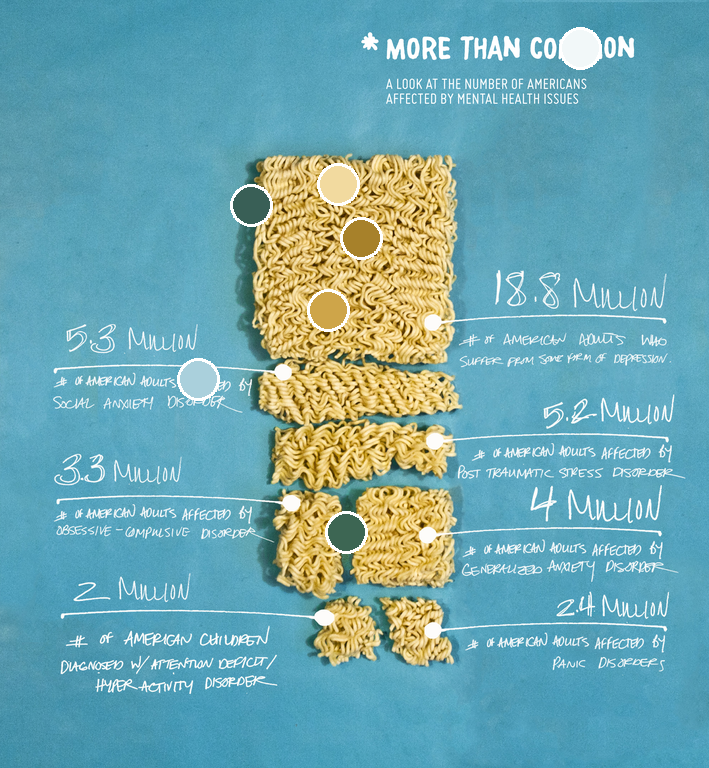 * MORE THAN CO ON
A LOOK AT THE NUMBER OF AMERICANS
AFFECTED BY MENTAL HEALTH ISSUES
18.8 MILLION
# OF AMERICAN ADULTS WHO
SUFFER FROM SOME FORM OF DEPRESSION.
5.3 MILLION
# OF AMERICAN ADULTS BY
SOCIAL ANXIETY DISORDER
5.2 MILLION
# OF AMERICAN ADULTS AFFECTED BY
POST TRAUMATIC STRESS DISORDER
3.3 MILLION
# OF AMERICAN ADULTS AFFECTED BY
OBSESSIVE-COMPULSIVE DISORDER
4 MILLION
# OF AMERICAN ADULTS AFFECTED BY
GENERALIZED ANXIETY DISORDER
2 MILLION
# OF AMERICAN CHILDREN
DIAGNOSED W/ ATTENTION DEFICIT/
HYPER ACTIVITY DISORDER
2.4 MILLION
# OF AMERICAN ADULTS AFFECTED BY
PANIC DISORDERS